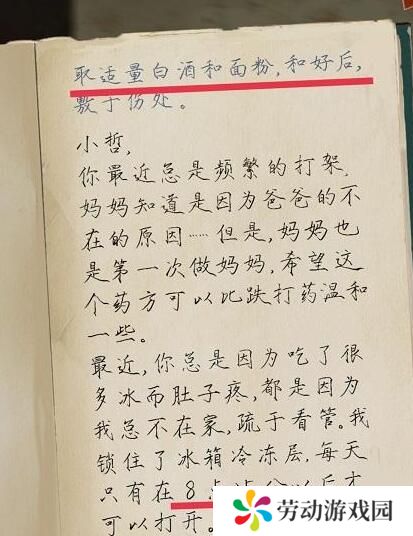 取适量白酒和面粉,和好后,
敷于伤处。
小哲,
你最近总是频繁的打架,
妈妈知道是因为爸爸的不
在的原因……但是,妈妈也
是第一次做妈妈,希望这
个药方可以比跌打药温和
一些。
最近,你总是因为吃了很
多冰而肚子疼,都是因为
我总不在家,疏于看管。我
锁住了冰箱冷冻层,每天
只有在8点
可以打开。
劳动游戏园
www.ldxey.com